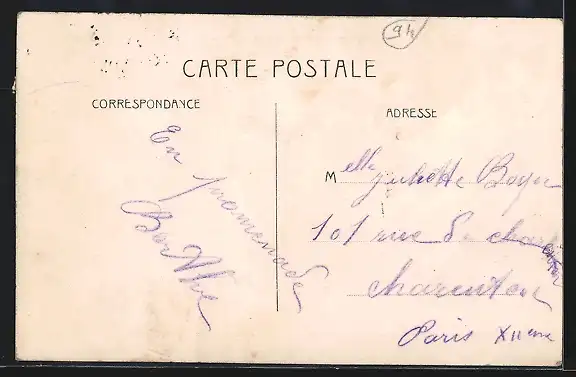 94
CARTE POSTALE
CORRESPONDANCE
ADRESSE
En promenade
Berthe
Melle Juliette Boyer
101 rue de
charenton
Paris XIIeme